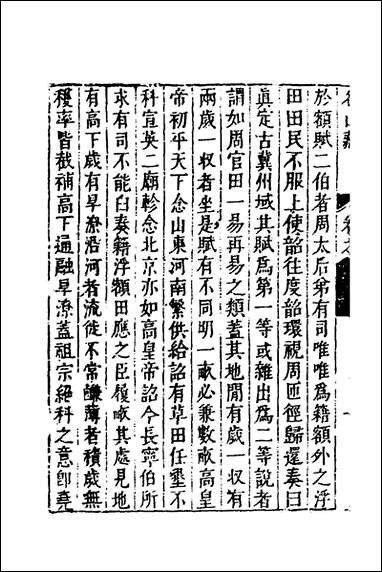 於額賦二伯者周太后弟有司唯唯爲籍額外之浮
田田民不服上使韶往度韶環視周匝徑歸還奏曰
眞定古冀州域其賦爲第一等或雜出爲二等說者
謂如周官田一易再易之類蓋其地閒有歲一收有
兩歲一收者坐是賦有不同明一畝必兼數畝高皇
帝初平天下念山東河南繁供給詔有草田任墾不
科宣英二廟軫念北京亦如高皇帝詔今長寧伯所
求有司不能白奏籍浮額田應之臣履畝其處見地
有高下歲有旱潦沿河者流徙不常磽薄者積歲無
穫率皆截補高下通融旱潦蓋祖宗絕科之意卽堯